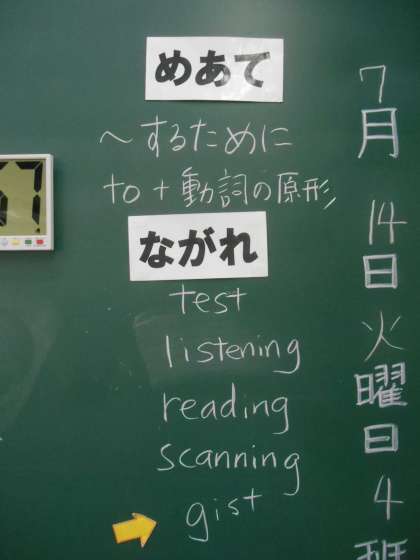 7月14日火曜日4班
めあて
～するために
to+動詞の原形
ながれ
test
listening
reading
scanning
gist